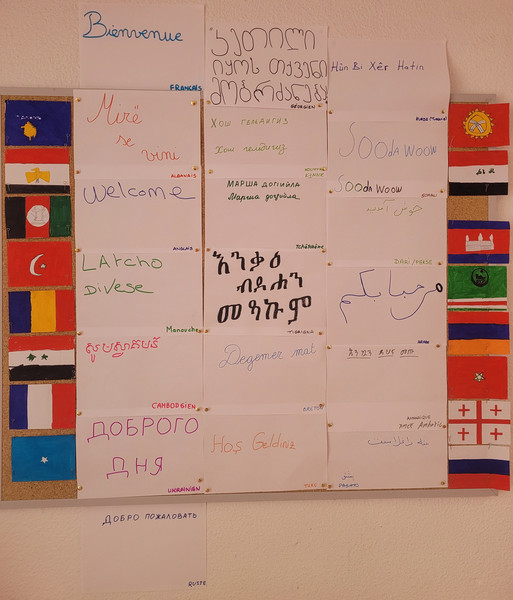 Bienvenue
FRANÇAIS
Mirë
se
vini
ALBANAIS
Welcome
ANGLAIS
LAtcho
Divese
Manouche
សូមស្វាគមន៍
CAMBODGIEN
ДОБРОГО
ДНЯ
UKRAINIEN
ДОБРО ПОЖАЛОВАТЬ
RUSSE
კეთილი
იყოს თქვენი
მობრძანება
GEORGIEN
Хош
Хош
МАРША ДОГIИЙЛА
Марша догийла
TCHÉTCHÈNE
እንቃዕ
ብደሐን
መዓኩም
TIGRIGNA
Degemer mat
BRETON
Hoş Geldiniz
TURC
Hûn Bi Xêr Hatin
KURDE
SOODA WOOW
SOODA WOOW
SOMALI
خوش آمدید
DARI/PERSE
مرحبا بكم
ARABE
እንኳን ደህና መጡ
پښتو
PASHTO